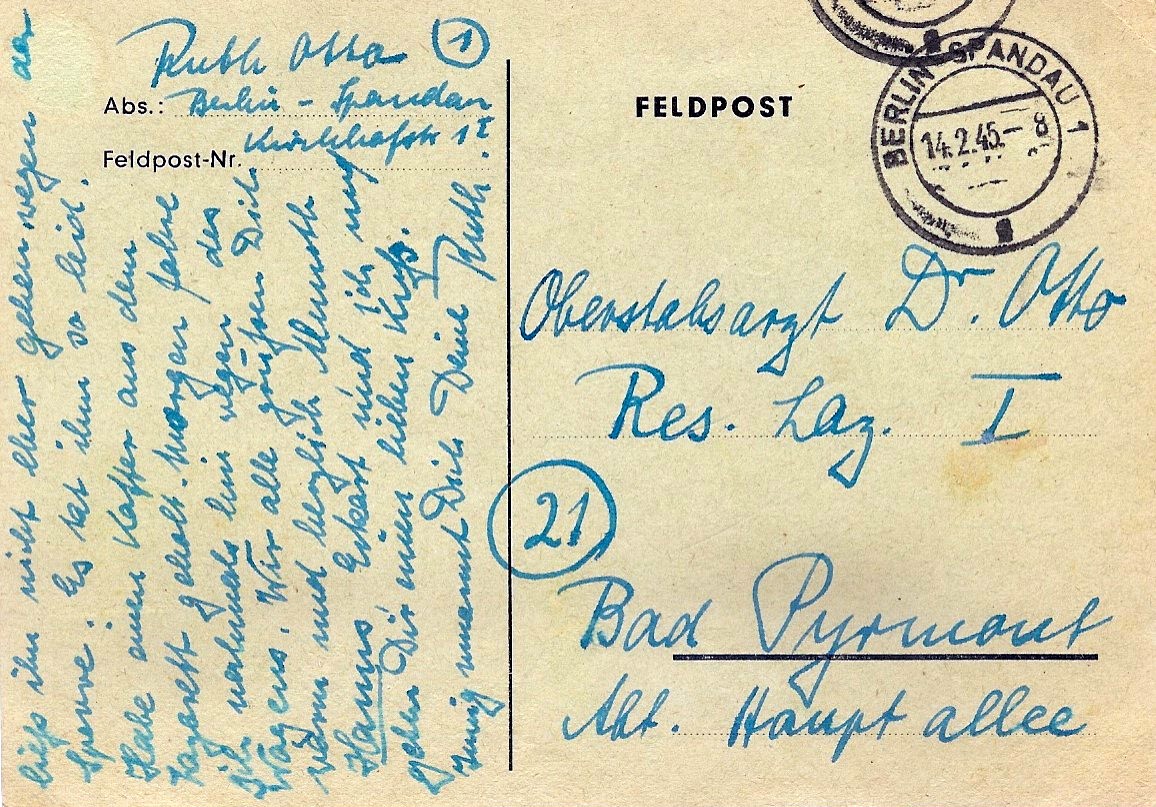 Ruth Otto (1)
Abs.: Berlin - Spandau
Feldpost-Nr. Kirchhofstr 1 I
FELDPOST
BERLIN-SPANDAU 1
14.2.45.- 8
Oberstabsarzt Dr. Otto
Res. Laz. I
(21)
Bad Pyrmont
Abt. Hauptallee
ließ ihn nicht eher gehen wegen der
Sperre. Es tat ihm so leid.
Habe einen Koffer aus dem
Lazarett geholt. Morgen fahre
ich nochmals hin wegen des
Wagens. Wir alle grüßen Dich,
und herzlich
Hanns Eckart und ich und
Dir einen lieben Kuß.
innig umarmt Dich Deine Ruth.